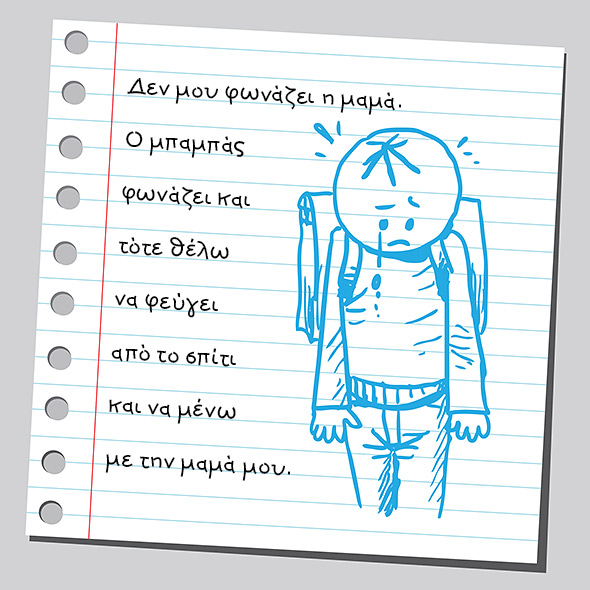 Δεν μου φωνάζει η μαμά.
Ο μπαμπάς
φωνάζει και
τότε θέλω
να φεύγει
από το σπίτι
και να μένω
με την μαμά μου.